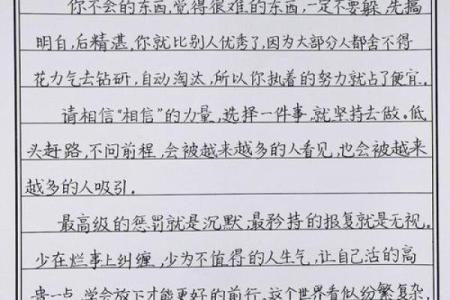 你不会的东西,觉得很难的东西,一定不要躲.先搞
明白,后精湛.你就比别人优秀了,因为大部分人都舍不得
花力气去钻研,自动淘汰,所以你执着的努力就占了便宜.
请相信“相信”的力量,选择一件事,就坚持去做.低
头赶路,不问前程,会被越来越多的人看见,也会被越来
越多的人吸引.
最高级的惩罚就是沉默.最矜持的报复就是无视.
少在烂事上纠缠,少为不值得的人生气,让自己活的高
贵一点.学会放下才能更好的前行.这个世界看似纷繁复杂